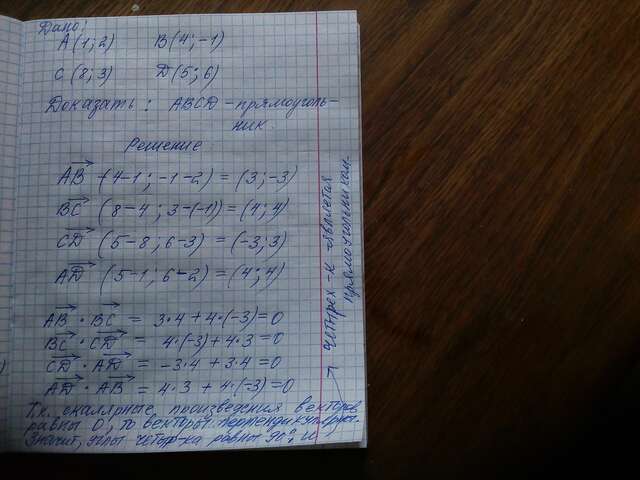 Дано:
A(1;2) B(4;-1)
C(8;3) D(5;6)
Доказать: ABCD - прямоуголь-
ник.
Решение
AB (4-1; -1-2) = (3; -3)
BC (8-4; 3-(-1)) = (4; 4)
CD (5-8; 6-3) = (-3; 3)
AD (5-1; 6-2) = (4; 4)
AB · BC = 3·4 + 4·(-3) = 0
BC · CD = 4·(-3) + 4·3 = 0
CD · AD = -3·4 + 3·4 = 0
AD · AB = 4·3 + 4·(-3) = 0
Т.к. скалярные произведения векторов
равны 0, то векторы перпендикулярны.
Значит, углы четыр-ка равны 90°, и
→ четырех-к является
прямоугольником.